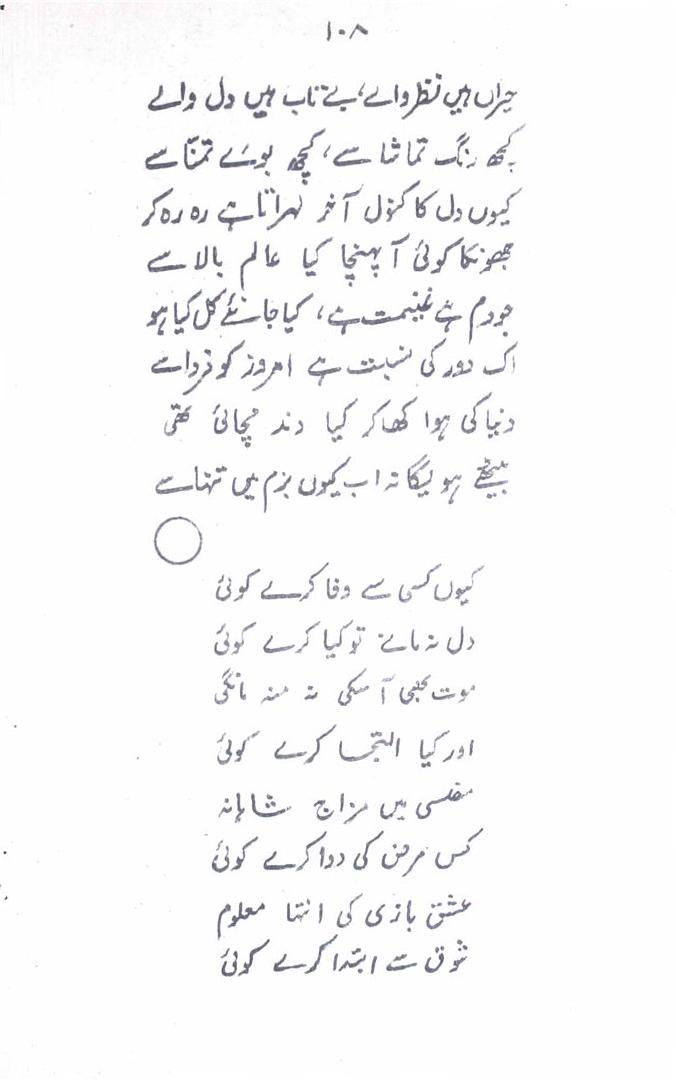 ۱۰۸
حیراں ہیں نظر والے، بے تاب ہیں دل والے
کچھ رنگ تماشا سے، کچھ بوئے تمنّا سے
کیوں دل کا کنول آخر لہراتا ہے رہ رہ کر
جھونکا کوئی آ پہنچا کیا عالم بالا سے
جو دم ہے غنیمت ہے، کیا جانئے کل کیا ہو
اک دور کی نسبت ہے امروز کو فردا سے
دنیا کی ہوا کھا کر کیا دند مچائی تھی
بیٹھے ہو یگانہ اب کیوں بزم میں تنہا سے
کیوں کسی سے وفا کرے کوئی
دل نہ مانے تو کیا کرے کوئی
موت بھی آ سکی نہ منہ مانگی
اور کیا التجا کرے کوئی
مفلسی میں مزاج شاہانہ
کس مرض کی دوا کرے کوئی
عشق بازی کی انتہا معلوم
شوق سے ابتدا کرے کوئی